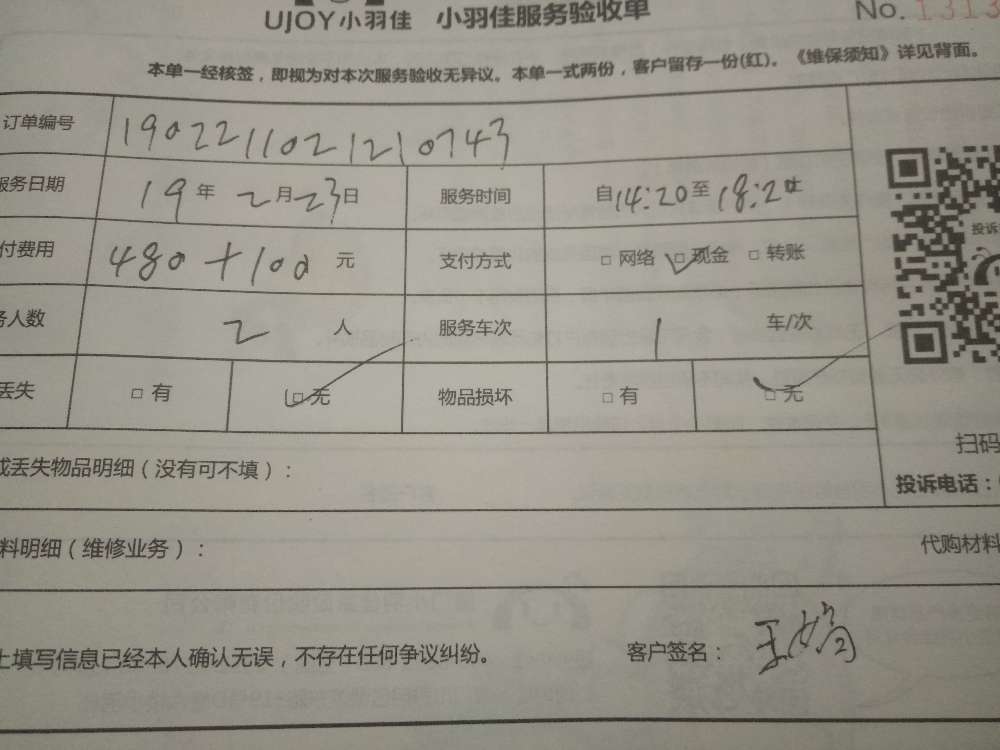 UJOY小羽佳 小羽佳服务验收单 No. 1313
本单一经核签，即视为对本次服务验收无异议。本单一式两份，客户留存一份(红)。《维保须知》详见背面。
订单编号 1902211021210743
服务日期 19年 2月23日 服务时间 自14:20至18:20止
付费用 480+100 元 支付方式 □ 网络 □ 现金 □ 转账
务人数 2 人 服务车次 1 车/次
丢失 □ 有 □ 无 物品损坏 □ 有 □ 无
投诉
扫码
或丢失物品明细（没有可不填）：
投诉电话：
料明细（维修业务）：
代购材料
上填写信息已经本人确认无误，不存在任何争议纠纷。 客户签名：王嫦